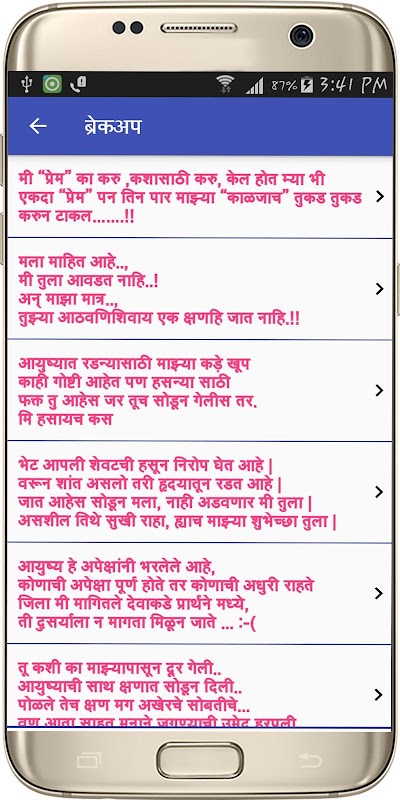 87% 3:41 PM
ब्रेकअप
मी “प्रेम” का करु ,कशासाठी करु, केल होत म्या भी
एकदा “प्रेम” पन तिन पार माझ्या “काळजाच” तुकड तुकड
करुन टाकल.......!!
मला माहित आहे..,
मी तुला आवडत नाहि..!
अन् माझा मात्र..,
तुझ्या आठवणिशिवाय एक क्षणहि जात नाहि.!!
आयुष्यात रडन्यासाठी माझ्या कड़े खूप
काही गोष्टी आहेत पण हसन्या साठी
फक्त तु आहेस जर तूच सोडून गेलीस तर.
मि हसायच कस
भेट आपली शेवटची हसून निरोप घेत आहे |
वरून शांत असलो तरी हृदयातून रडत आहे |
जात आहेस सोडून मला, नाही अडवणार मी तुला |
असशील तिथे सुखी राहा, ह्याच माझ्या शुभेच्छा तुला |
आयुष्य हे अपेक्षांनी भरलेले आहे,
कोणाची अपेक्षा पूर्ण होते तर कोणाची अधुरी राहते
जिला मी मागितले देवाकडे प्रार्थने मध्ये,
ती दुसर्याला न मागता मिळून जाते ... :-(
तू कशी का माझ्यापासून दूर गेली..
आयुष्याची साथ क्षणात सोडून दिली..
पोळले तेच क्षण मग अखेरचे सोबतीचे...
वण आता साहत मनाने जगण्याची उमेद हरपली